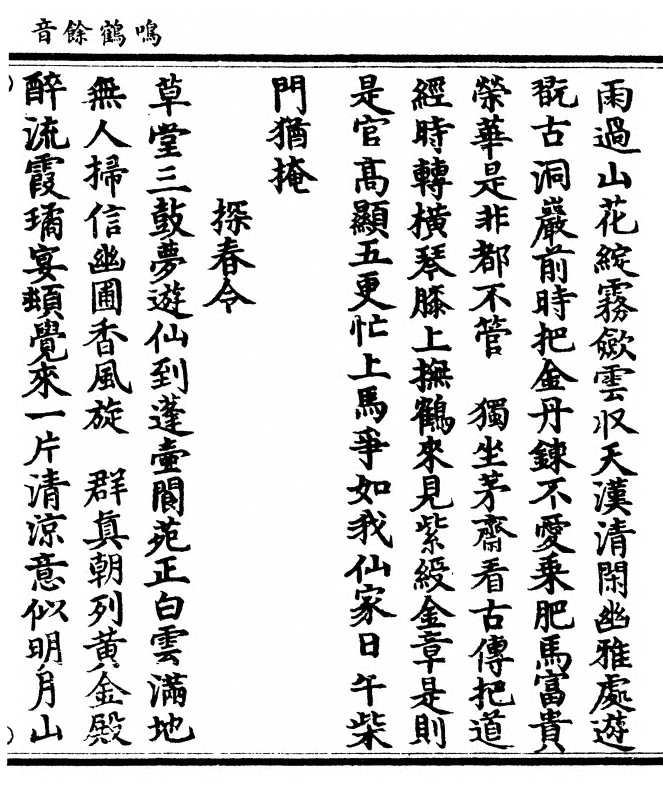 鳴鶴餘音
雨過山花綻霧斂雲収天漢清閑幽雅處遊
翫古洞巖前時把金丹鍊不愛乗肥馬富貴
榮華是非都不管　獨坐茅齋看古傳把道
經時轉橫琴膝上撫鶴來見紫綬金章是則
是官高顯五更忙上馬爭如我仙家日午柴
門猶掩
探春令
草堂三鼓夢遊仙到蓬壷閬苑正白雲滿地
無人掃信幽圃香風旋　群真朝列黃金殿
醉流霞璚宴頻覺來一片清涼意似明月山